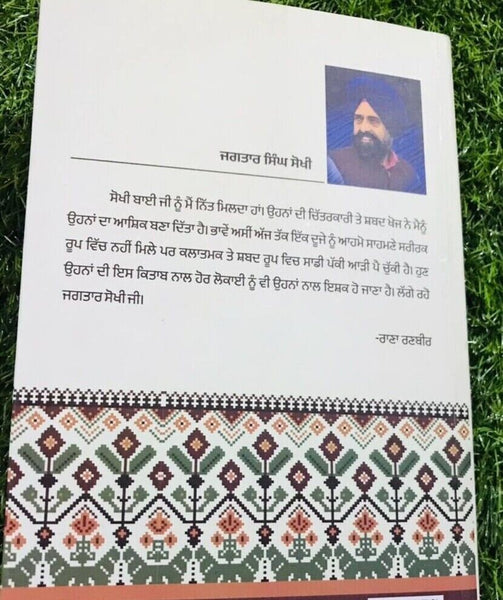 ਜਗਤਾਰ ਸਿੰਘ ਸੋਖੀ
ਸੋਖੀ ਬਾਈ ਜੀ ਨੂੰ ਮੈਂ ਨਿੱਤ ਮਿਲਦਾ ਹਾਂ। ਉਹਨਾਂ ਦੀ ਚਿੱਤਰਕਾਰੀ ਤੇ ਸ਼ਬਦ ਖੋਜ ਨੇ ਮੈਨੂੰ
ਉਹਨਾਂ ਦਾ ਆਸ਼ਿਕ ਬਣਾ ਦਿੱਤਾ ਹੈ। ਭਾਵੇਂ ਅਸੀਂ ਅੱਜ ਤੱਕ ਇੱਕ ਦੂਜੇ ਨੂੰ ਆਹਮੋ ਸਾਹਮਣੇ ਸਰੀਰਕ
ਰੂਪ ਵਿੱਚ ਨਹੀਂ ਮਿਲੇ ਪਰ ਕਲਾਤਮਕ ਤੇ ਸ਼ਬਦ ਰੂਪ ਵਿਚ ਸਾਡੀ ਪੱਕੀ ਆੜੀ ਪੈ ਚੁੱਕੀ ਹੈ। ਹੁਣ
ਉਹਨਾਂ ਦੀ ਇਸ ਕਿਤਾਬ ਨਾਲ ਹੋਰ ਲੋਕਾਈ ਨੂੰ ਵੀ ਉਹਨਾਂ ਨਾਲ ਇਸ਼ਕ ਹੋ ਜਾਣਾ ਹੈ। ਲੱਗੇ ਰਹੋ
ਜਗਤਾਰ ਸੋਖੀ ਜੀ।
-ਰਾਣਾ ਰਣਬੀਰ